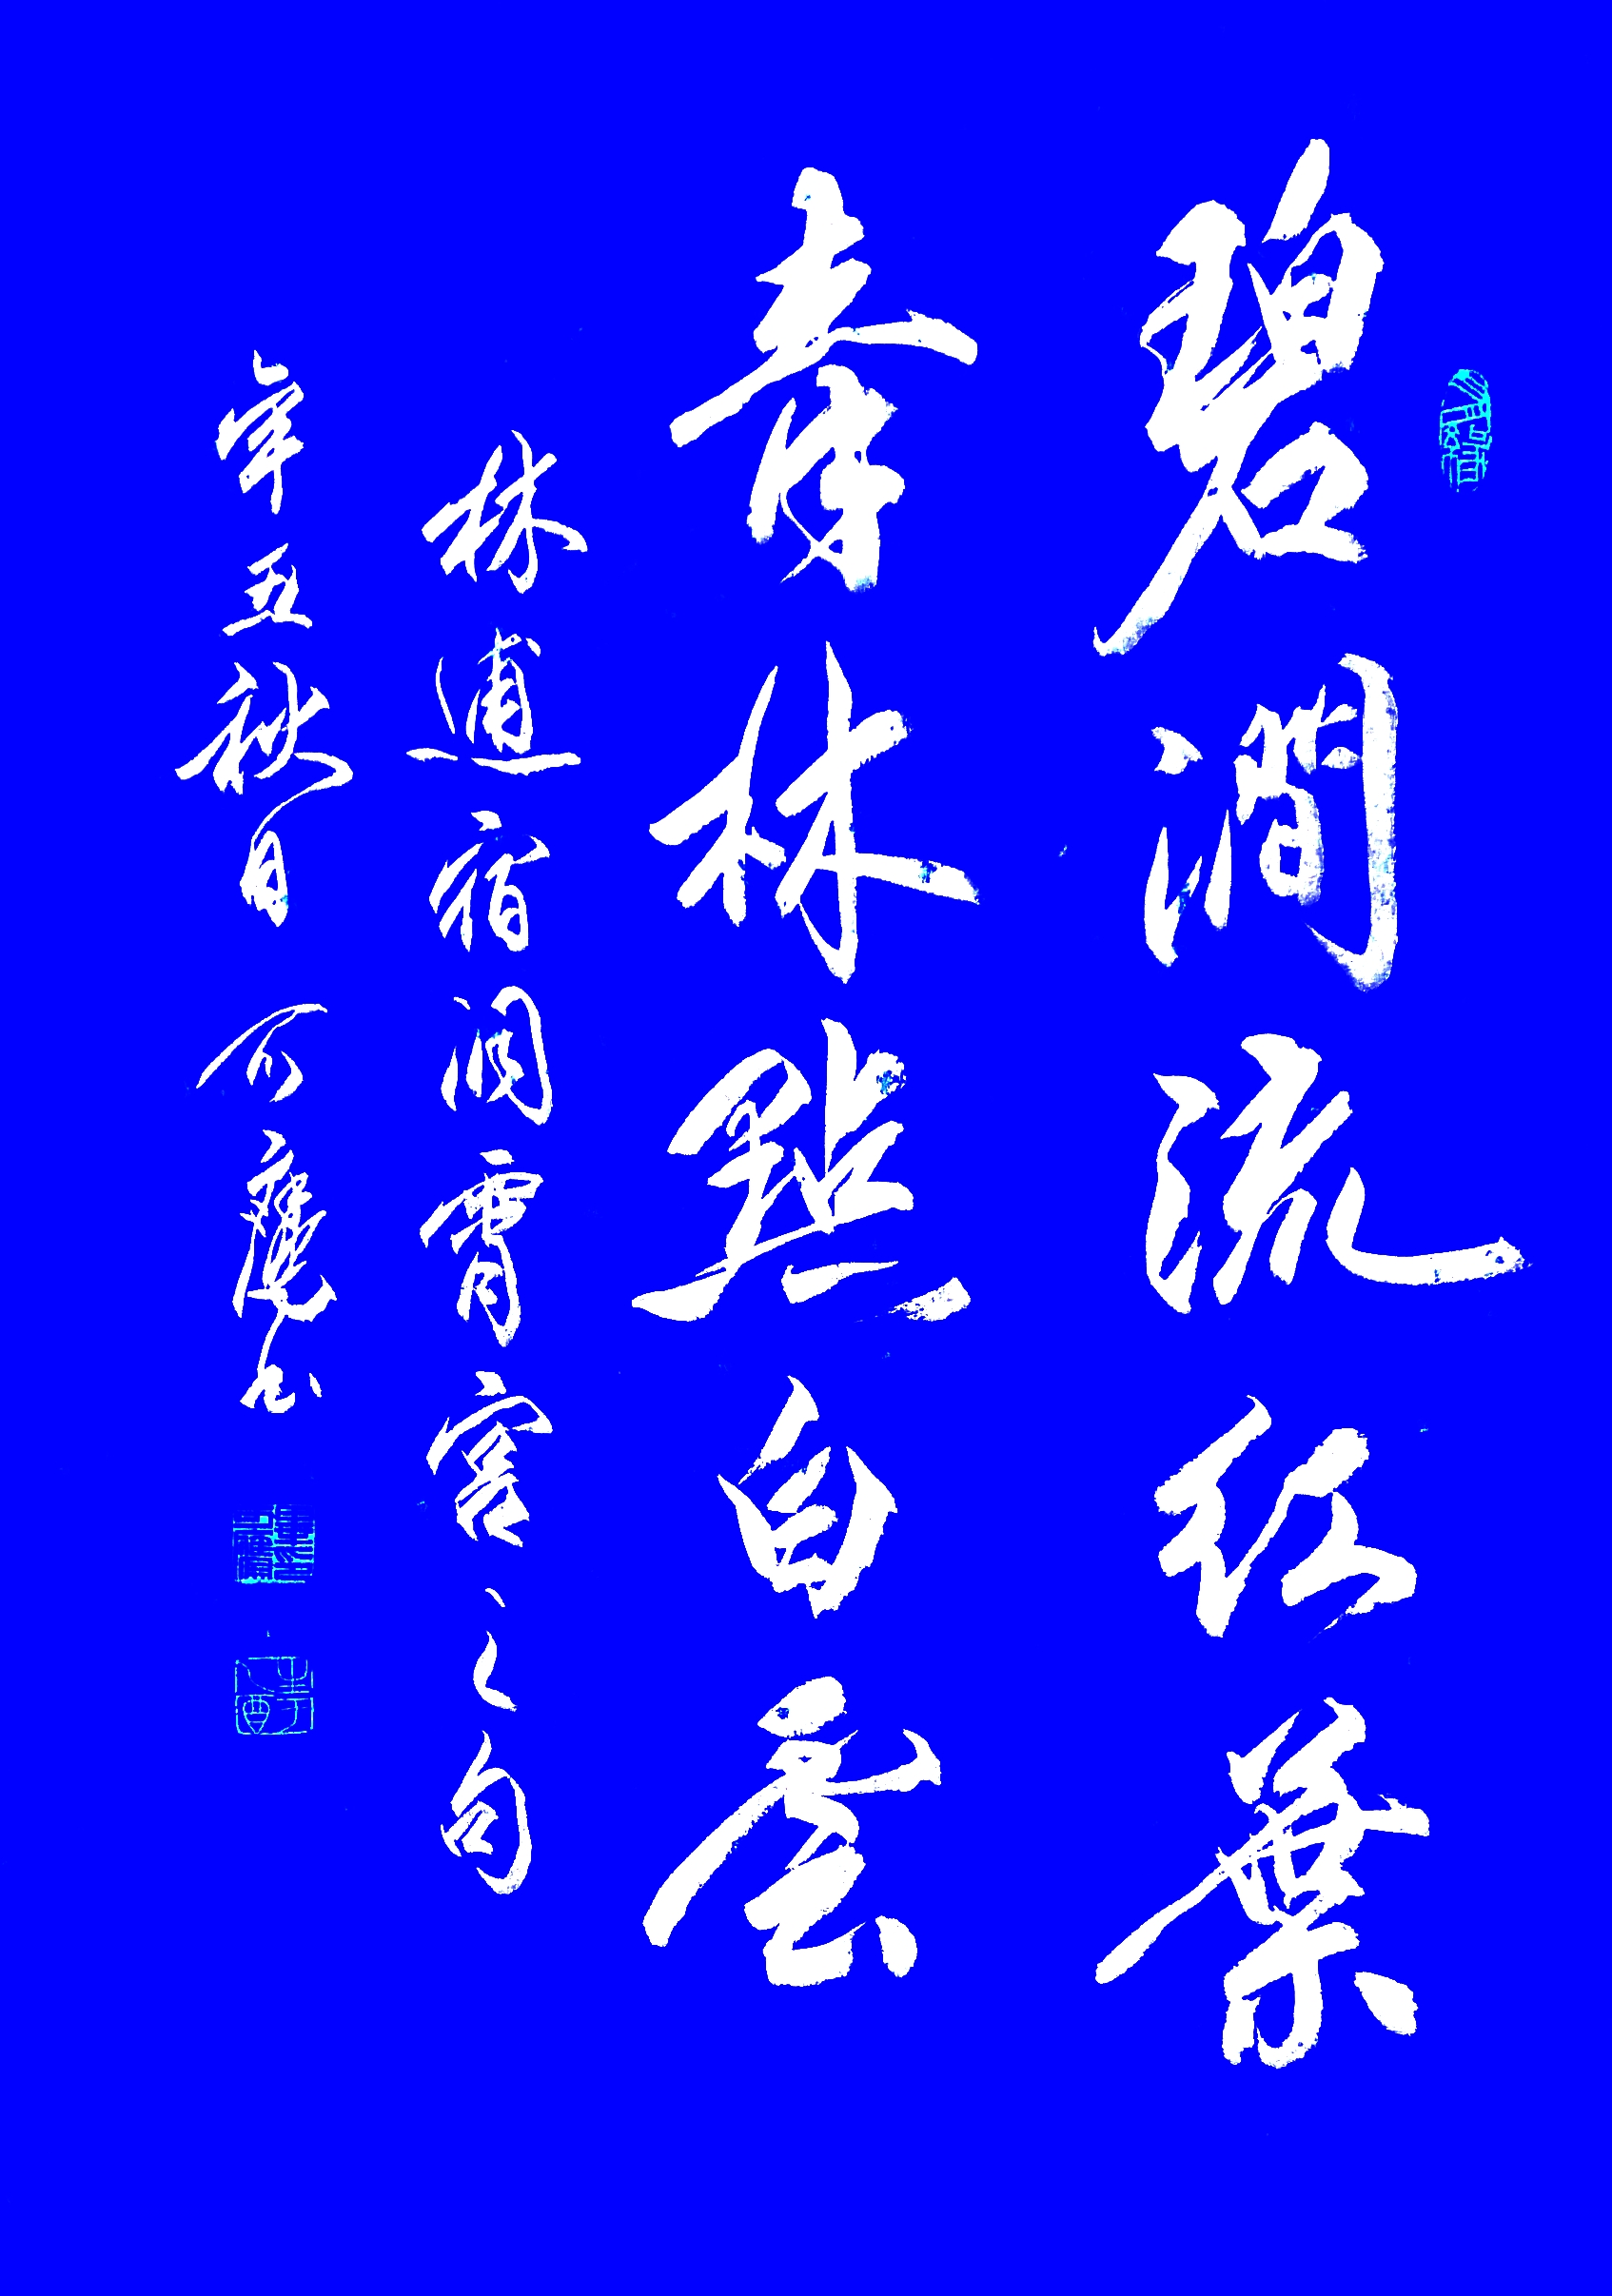 碧澗流紅葉
青林點白雲
林逋宿洞霄宮之句
辛丑秋月書